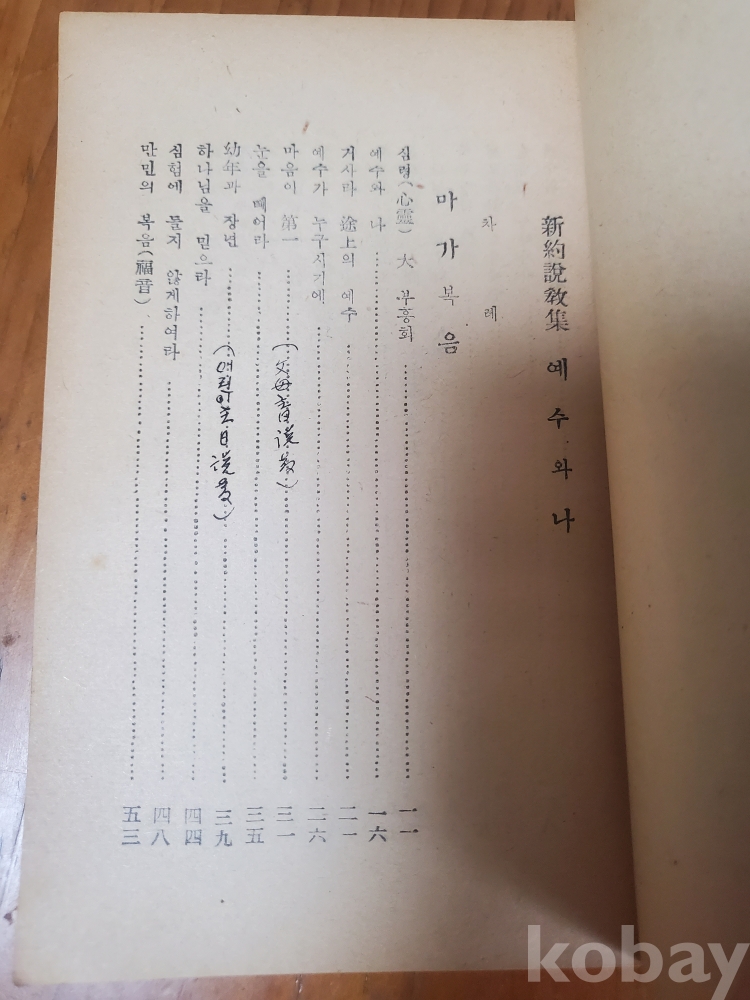 新約說敎集 예수와나
차례
마가복음
심령(心靈) 大 부흥회 一一
예수와 나 一六
거사라 途上의 예수 二一
예수가 누구시기에 二六
마음이 第一 (父母主日 說敎) 三一
눈을 빼어라 三五
幼年과 장년 (어린이主日 說敎) 三九
하나님을 믿으라 四四
시험에 들지 않게하여라 四八
만민의 복음(福音) 五三
kobay